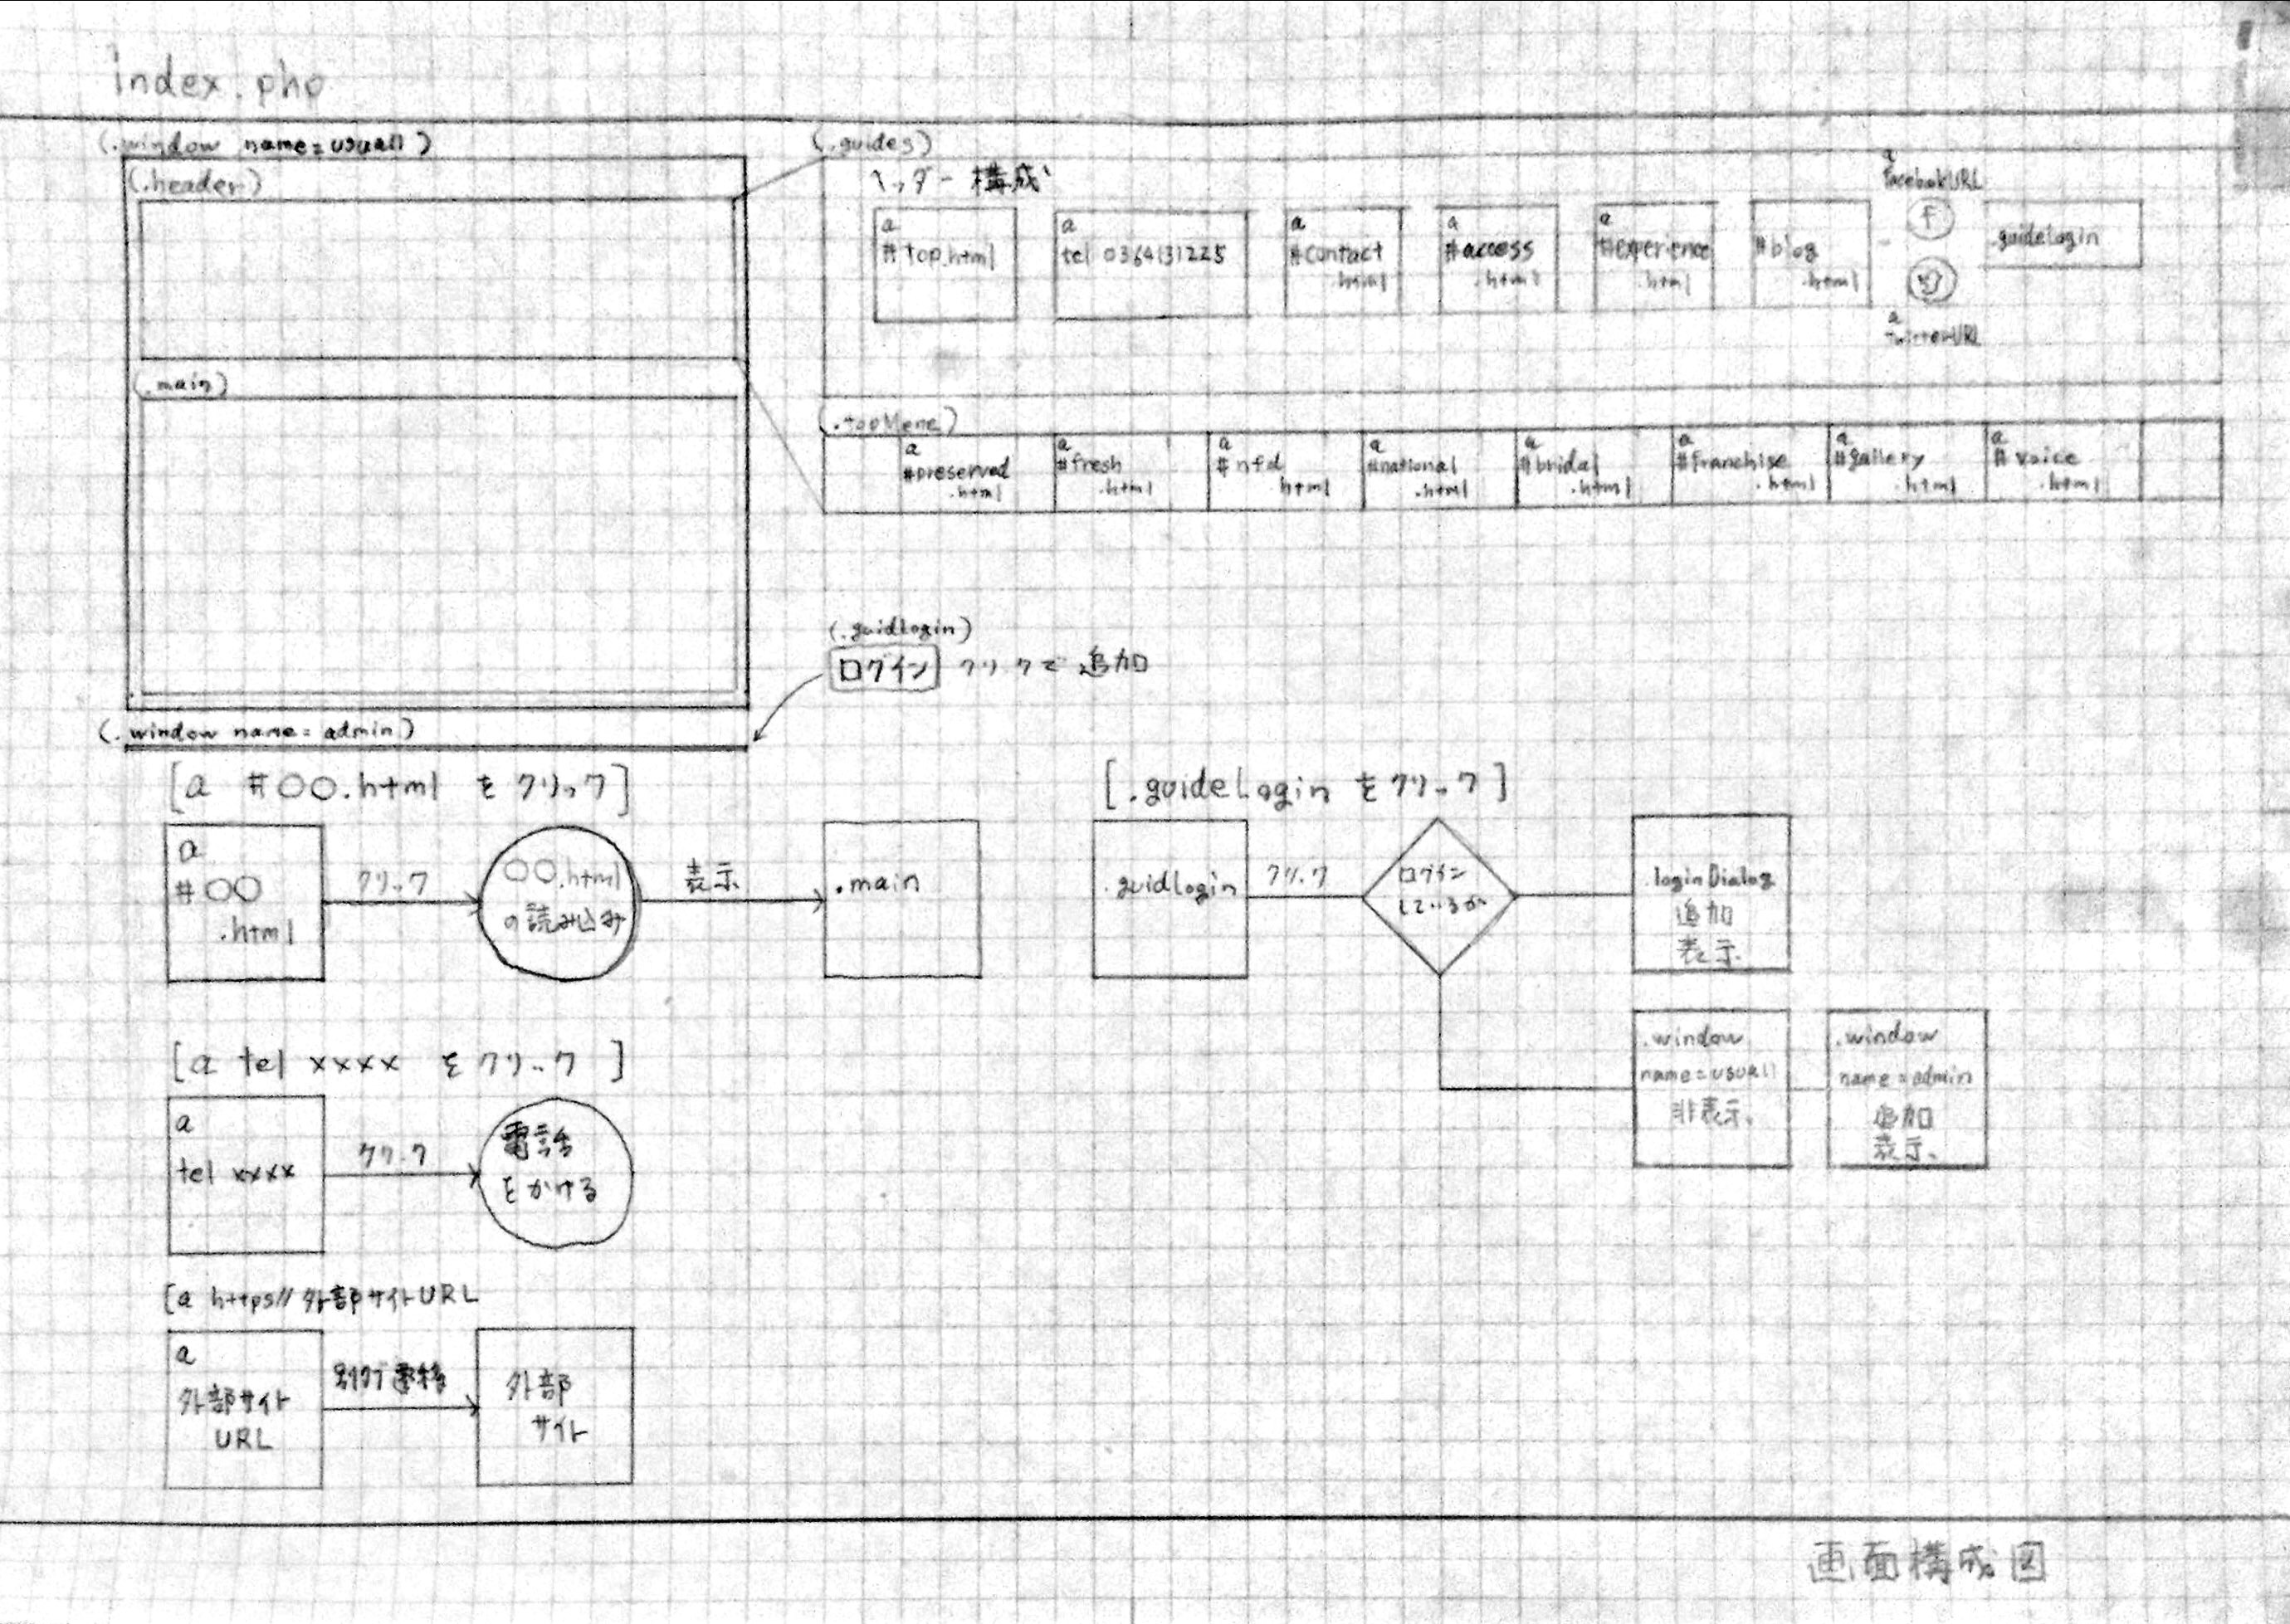 index.php
(.window name=usuall)
(.header)
(.main)
(.guides)
ヘッダー構成
a
#top.html
a
tel 0364131225
a
#contact
.html
a
#access
.html
a
#experience
.html
#blog
.html
a
facebookURL
f
a
twitterURL
.guidelogin
(.topMene)
a
#preserved
.html
a
#fresh
.html
a
#nfd
.html
a
#national
.html
a
#bridal
.html
a
#franchise
.html
a
#gallery
.html
a
#voice
.html
(.guidlogin)
ログイン クリックで 追加
(.window name=admin)
[a #○○.html をクリック]
a
#○○
.html
クリック
○○.html
の読み込み
表示
.main
[.guideLogin をクリック]
.guidlogin
クリック
ログイン
しているか
.loginDialog
追加
表示
.window
name=usuall
非表示
.window
name=admin
追加
表示
[a tel xxxx をクリック]
a
tel xxxx
クリック
電話
をかける
[a https// 外部サイトURL
a
外部サイト
URL
別タブ遷移
外部
サイト
画面構成図